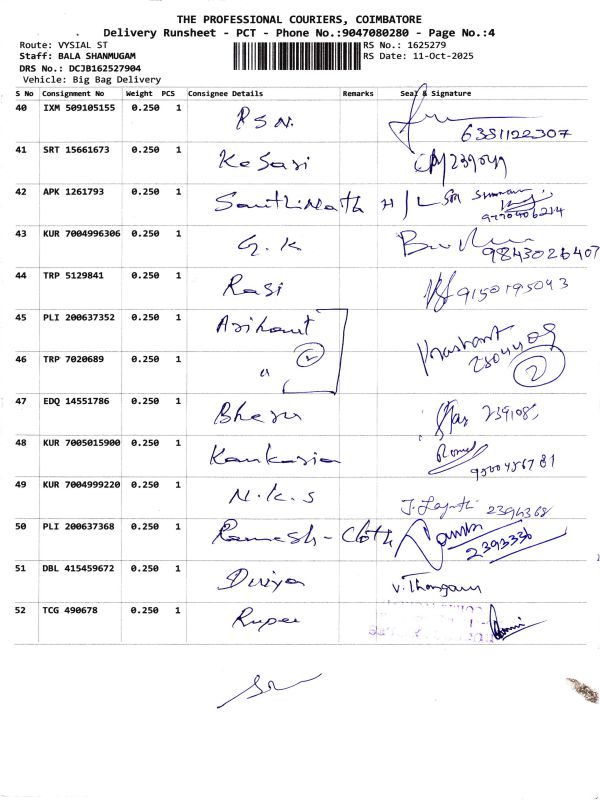 THE PROFESSIONAL COURIERS, COIMBATORE
Delivery Runsheet - PCT - Phone No.:9047080280 - Page No.:4
Route: VYSIAL ST RS No.: 1625279
Staff: BALA SHANMUGAM RS Date: 11-Oct-2025
DRS No.: DCJB162527904
Vehicle: Big Bag Delivery
S No Consignment No Weight PCS Consignee Details Remarks Seal & Signature
40 IXM 509105155 0.250 1 P S N.
6381122307
41 SRT 15661673 0.250 1 Kesari 239049
42 APK 1261793 0.250 1 SanthiNath H/L
43 KUR 7004996306 0.250 1 G. K 9843026407
44 TRP 5129841 0.250 1 Rasi 9150195043
45 PLI 200637352 0.250 1 Arihant Prashant
46 TRP 7020689 0.250 1 " 2 2
47 EDQ 14551786 0.250 1 Bheru
48 KUR 7005015900 0.250 1 Kankaria
9500456781
49 KUR 7004999220 0.250 1 N.K.S 2394368
50 PLI 200637368 0.250 1 Ramesh-Cloth
2393336
51 DBL 415459672 0.250 1 Diviya V. Thangam
52 TCG 490678 0.250 1 Rupee